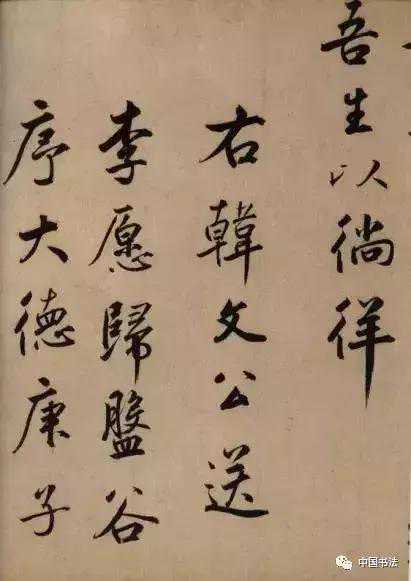 吾生以徜徉
右韓文公送
李愿歸盤谷
序大德庚子
中国书法